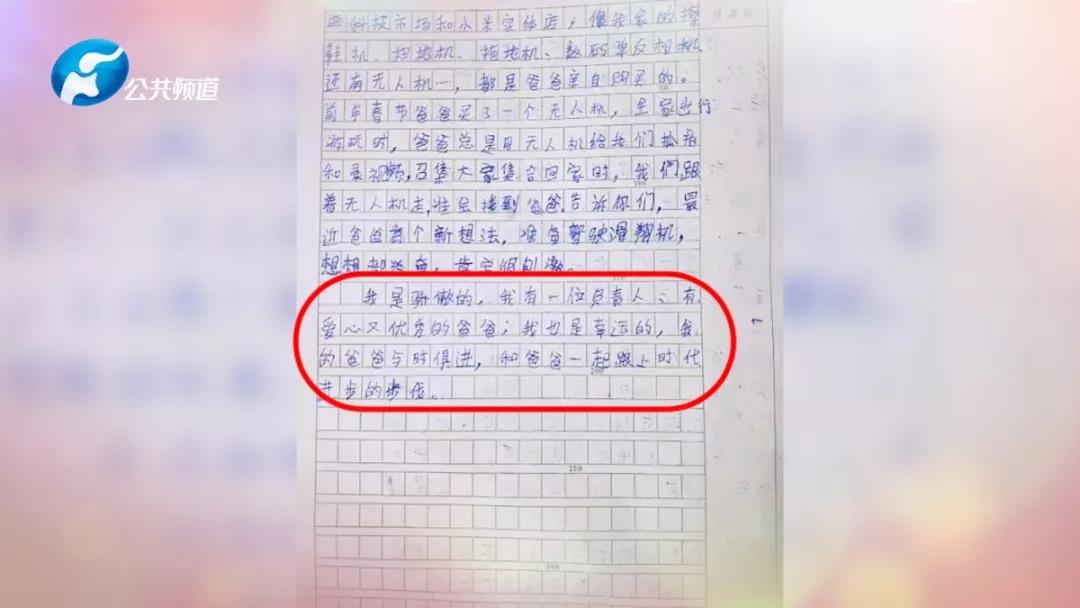 公共频道
科技市场和小米实体店，像我家的擦
鞋机、扫地机、拖地机、数码单反相机
还有无人机一，都是爸爸亲自购买的。
前年春节爸爸买了一个无人机，全家出行
游玩时，爸爸总是用无人机给我们拍
和录视频，召集大家集合回家时，我们跟
着无人机走，准会找到爸爸。告诉你们，最
近爸爸有个新想法，准备驾驶滑翔机，
想想都兴奋，肯定很刺激。
我是骄傲的，我有一位负责人、有
爱心又优秀的爸爸；我也是幸运的，我
的爸爸与时俱进，和爸爸一起跟上时代
进步的步伐。
200
300